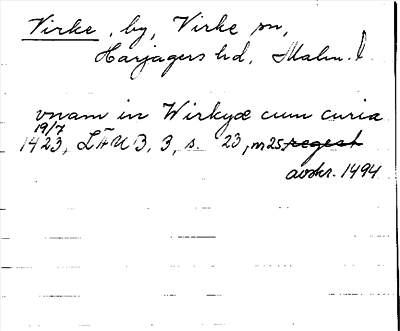 Virke, by, Virke sn,
Harjagers hd, Malm. l
vnam in Wirkyæ cum curia
19/7
1423, LÄU B, 3, s. 23, m25 regest
avskr. 1494